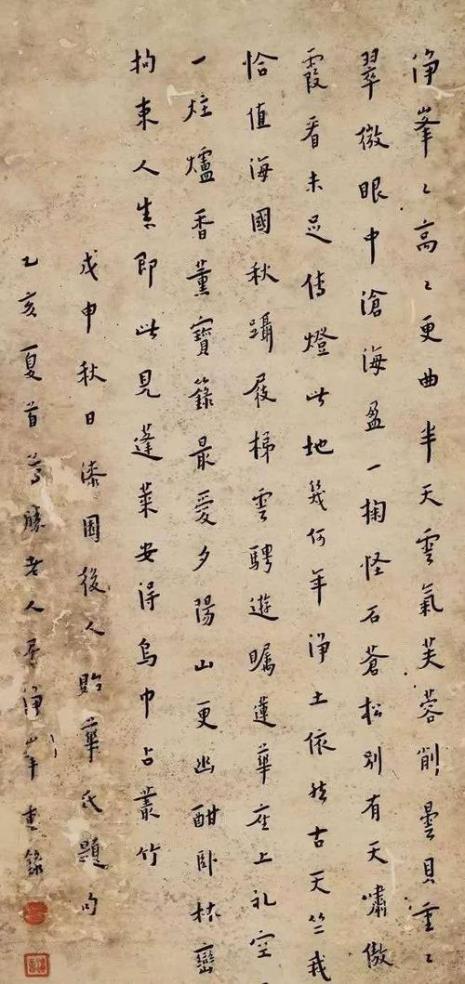 淨峯々高々更曲半天雲氣芙蓉削曇貝重々
翠微眼中滄海盈一掬怪石蒼松別有天嘯傲
霞看未足傳燈此地幾何年淨土依然古天竺我
恰值海國秋躡屐梯雲騁遊矚蓮華座上礼空
一炷爐香薰寶籙最愛夕陽山更幽酣卧林巒
拘束人生即此見蓬萊安得烏巾占叢竹
戊申秋日漆園後人貽華氏題句
乙亥夏首尊勝老人居淨峯書錄